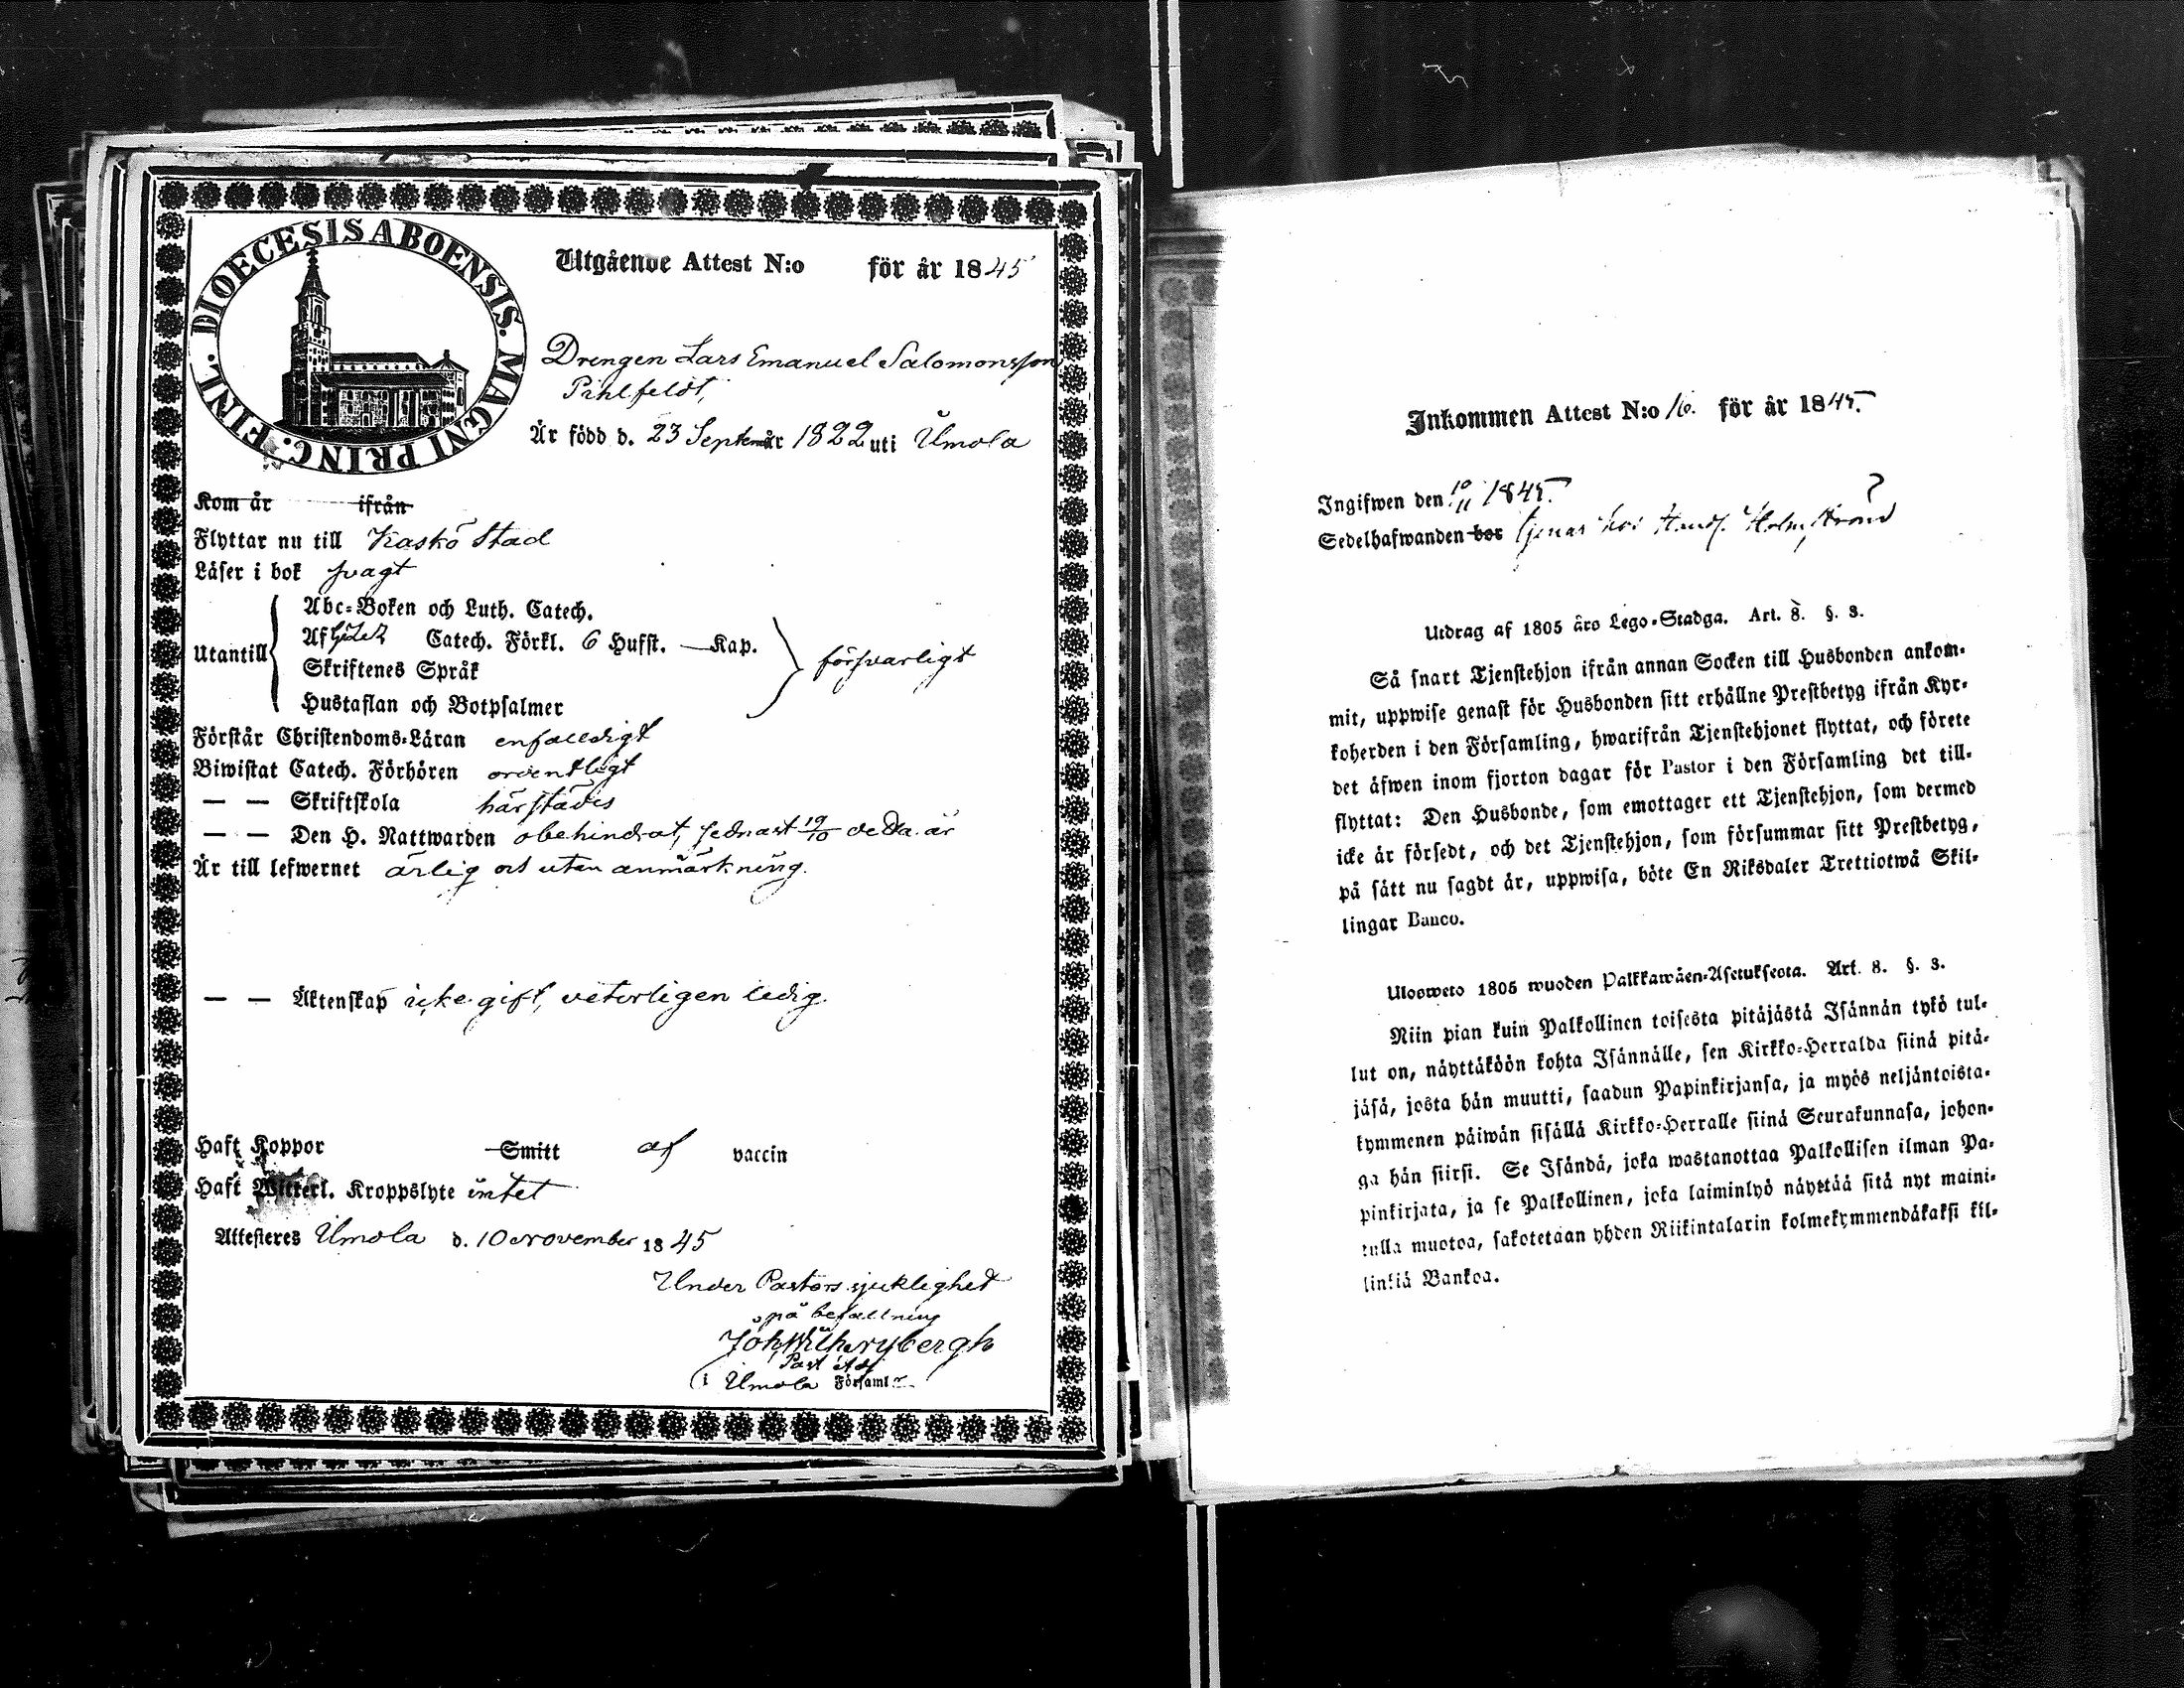 DIOECESIS ABOENSIS. MAGNI PRINC. FINL.
Utgående Attest N:o för år 1845
Drengen Lars Emanuel Salomonsson
Pihlfeldt,
Är född d. 23 September 1822 uti Ilmola
Kom år ifrån
Flyttar nu till Kaskö Stad
Läser i bok svagt
Utantill
Abc-Boken och Luth. Catech.
Af Catech. Förkl. 6 Hufst. — Kap.
Skriftenes Språk
Hustaflan och Botpsalmer
försvarligt
Förstår Christendoms-Läran enfalldigt
Biwistat Catech. Förhören ordentligt
— — Skriftskola härstädes
— — Den H. Nattwarden obehindrat, sednast 19/10 detta år
Är till lefwernet ärlig och utan anmärkning.
— — Äktenskap icke gift, veterligen ledig.
Haft Koppor Smitt af vaccin
Haft Witterl. Kroppslyte intet
Attesteres Ilmola d. 10 November 1845
Under Pastors sjuklighet
på befallning
Joh. Wilh. Nybergh
Past. Adj.
i Ilmola Församl.
Inkommen Attest N:o 16. för år 1845.
Ingifwen den 10/11 1845.
Sedelhafwanden bor tjenar hos Handl. Holmström
Utdrag af 1805 års Lego-Stadga. Art. 8. §. 3.
Så snart Tjenstehjon ifrån annan Socken till Husbonden ankom-
mit, uppwise genast för Husbonden sitt erhållne Prestbetyg ifrån Kyr-
koherden i den Församling, hwarifrån Tjenstehjonet flyttat, och förete
det äfwen inom fjorton dagar för Pastor i den Församling det till-
flyttat: Den Husbonde, som emottager ett Tjenstehjon, som dermed
icke är försedt, och det Tjenstehjon, som försummar sitt Prestbetyg,
på sätt nu sagdt är, uppwisa, böte En Riksdaler Trettiotwå Skil-
lingar Banco.
Ulosweto 1805 wuoden Palkkawäen-Asetuksesta. Art. 8. §. 3.
Niin pian kuin Palkollinen toisesta pitäjästä Isännän tykö tul-
lut on, näyttäköön kohta Isännälle, sen Kirkko-Herralda siinä pitä-
jäsä, josta hän muutti, saadun Papinkirjansa, ja myös neljäntoista-
kymmenen päiwän sisällä Kirkko-Herralle siinä Seurakunnasa, johon-
ga hän siirsi. Se Isändä, joka wastanottaa Palkollisen ilman Pa-
pinkirjata, ja se Palkollinen, joka laiminlyö näyttää sitä nyt maini-
tulla muotoa, sakotetaan yhden Riikintalarin kolmekymmendäkaksi kil-
linkiä Bankoa.